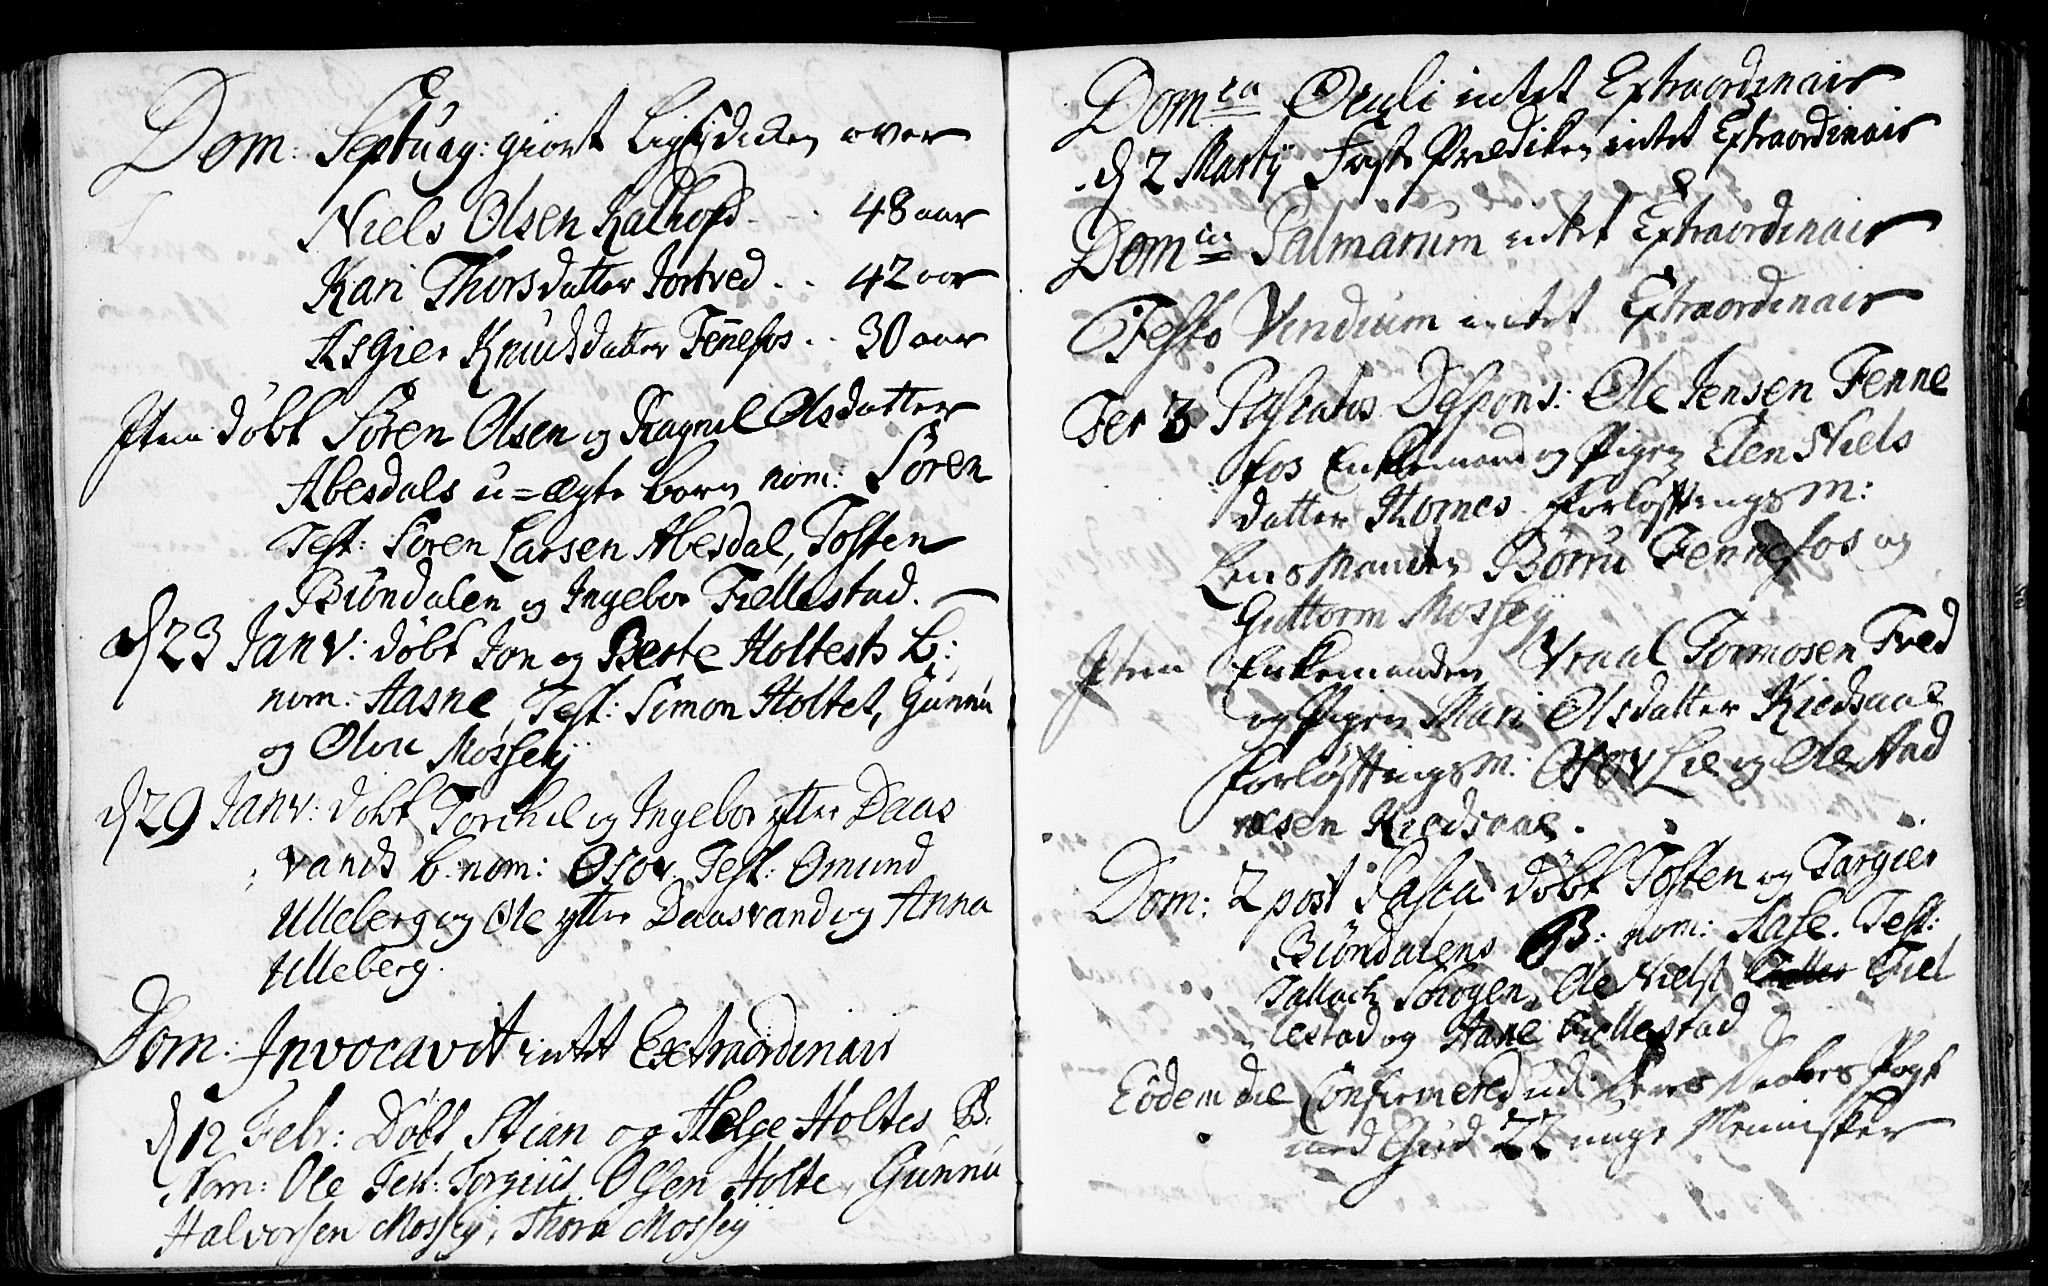 Dom: Septuag: giort Ligprdicken over
Niels Olsen Kalhofd - - 48 aar
Kari Thorsdatter Jortved - - 42 aar
Asgier Knudsdatter Fennefos - - 30 aar
Item døbt Søren Olsen og Ragnil Olsdatter
Abesdals u=ægte barn nom: Søren
Test: Søren Larsen Abesdal, Tosten
Bøndalen og Ingebor Fiellestad.
d 23 Janv: døbt Jon og Berte Holtests b:
nom: Aasne, Test: Simon Holtet, Gunnu
og Olou Mosseÿ
d 29 Janv: døbt Torchel og Ingebor ytter Daas
vands b: nom: Osov. Test: Omund
Ulleberg og Ole ytter Daasvand og Anna
Ulleberg.
Dom: Invocavit intet Extraordinair
d 12 Febr: Døbt Stian og Helge Holtes B:
Nom: Ole Test: Torgius Olsen Holte, Gunnu
Halvorsen Mosseÿ, Thora Mosseÿ
Dom ca Oculi intet Extraordinair
d 2 Martÿ Faste Prædiken intet Extraordinair
Dom ca Palmarum intet Extraordinair
Festo Viridium intet Extraordinair
Fer 3 Paschatos Despons: Ole Jensen Fenne
fos Enkemand og Pigen Elen Niels
datter Hornes. Forløftings M:
Lensmanden Børru Fennefos og
Guttorm Mosseÿ
Item Enkemanden Vraal Tormosen Tved
og Pigen Mari Olsdatter Kiedsaae
Forløftings M: Osov Lie og Ole Aad
nesen Kiedsaae.
Dom: 2 post Pasca døbt Tosten og Targier
Bøndalens B: nom: Aase. Test:
Tallach Schogen, Ole Niels Fiel
lestad og Aane Fiellestad
Eodem die Confirmered udi deres Daabes Pagt
med Gud 22 unge Mennisker